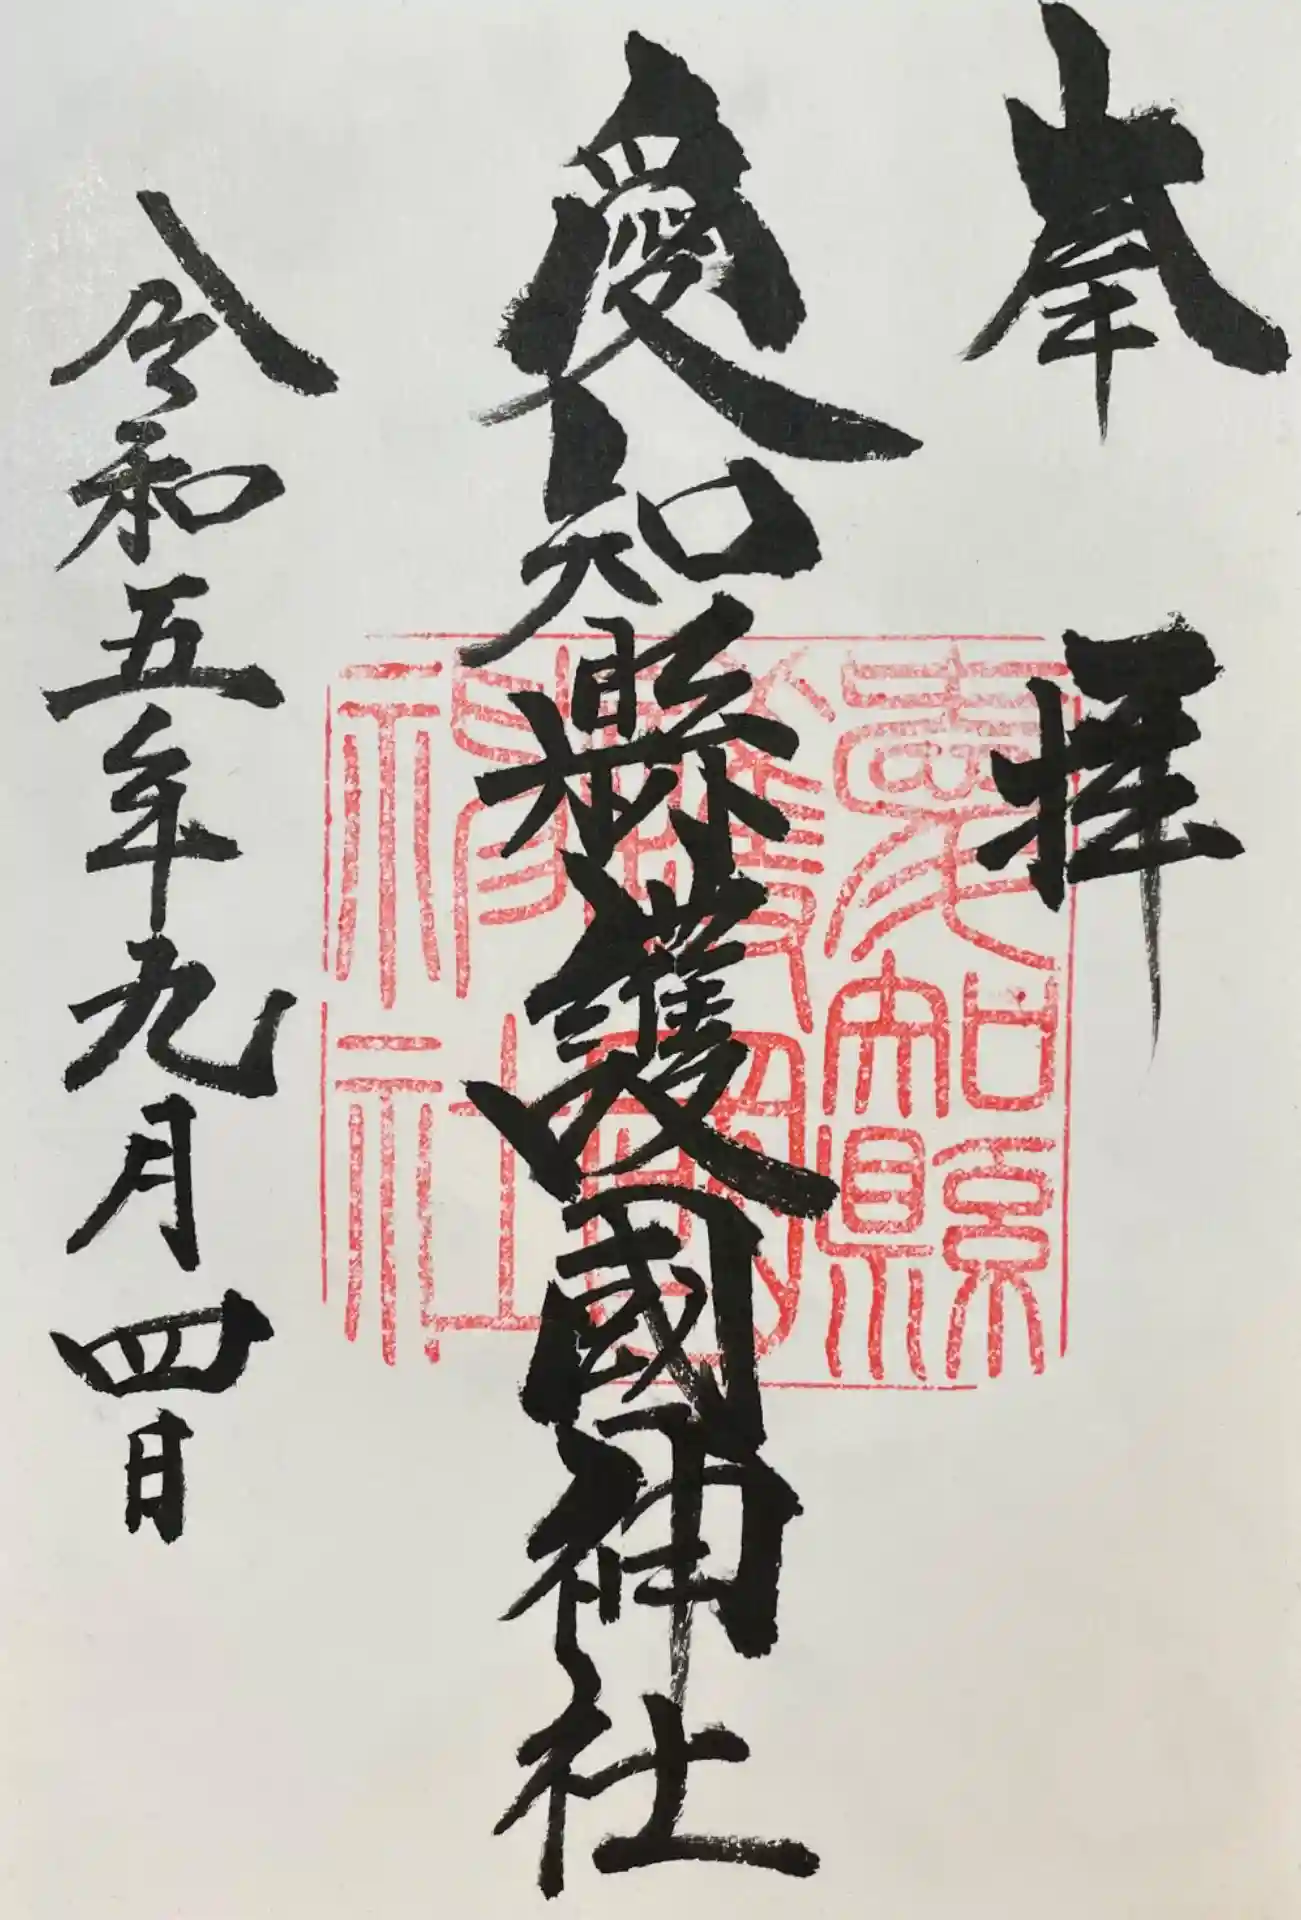 奉拝
愛知縣護國神社
愛知縣
護國
神社
令和五年九月四日